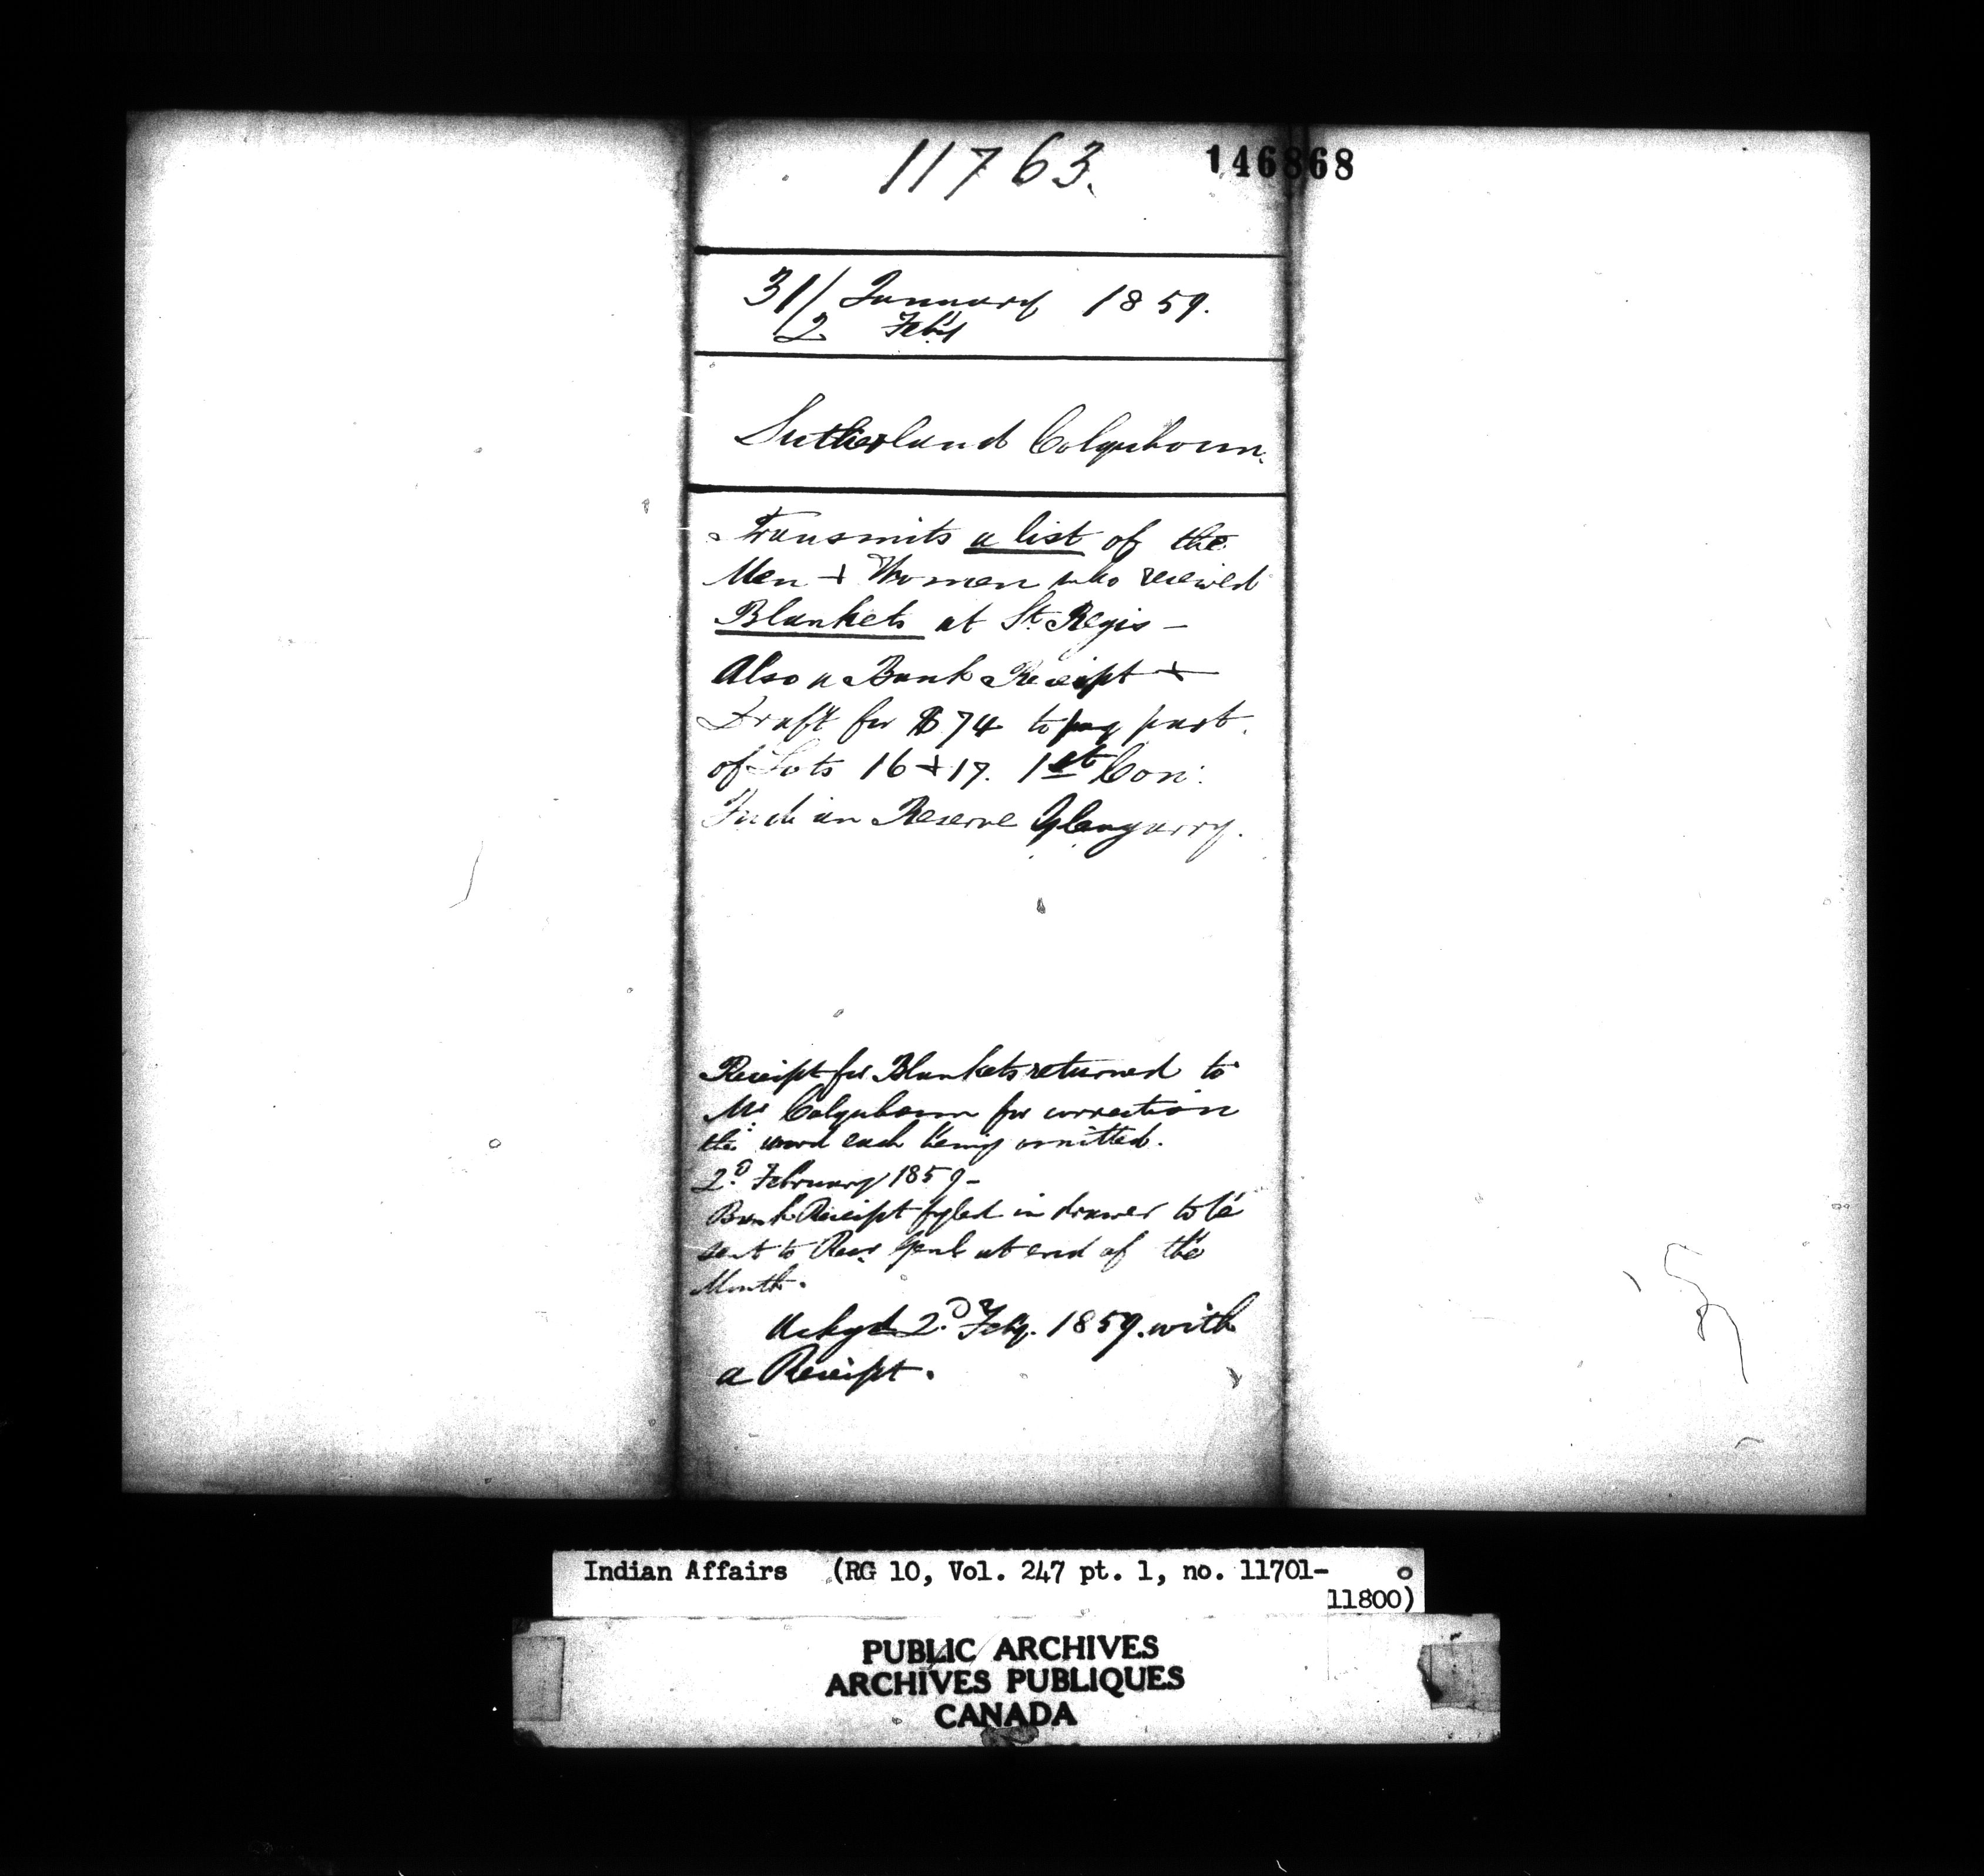 11763.
146868
31/ January 1859.
2 Feby
Sutherland Colquhoun.
Transmits a list of the
Men + Women who received
Blankets at St. Regis -
Also a Bank Receipt +
Draft for $74 to pay part
of Lots 16 + 17. 1st Con:
Indian Reserve Glengarry.
Receipt for Blankets returned to
Mr Colquhoun for correction
the word each being omitted.
2d February 1859-
Bank Receipt fyled in drawer to be
sent to Recr Genl at end of the
Month.
Ackgd 2d Feby. 1859. with
a Receipt.
Indian Affairs (RG 10, Vol. 247 pt. 1, no. 11701-
11800)
PUBLIC ARCHIVES
ARCHIVES PUBLIQUES
CANADA